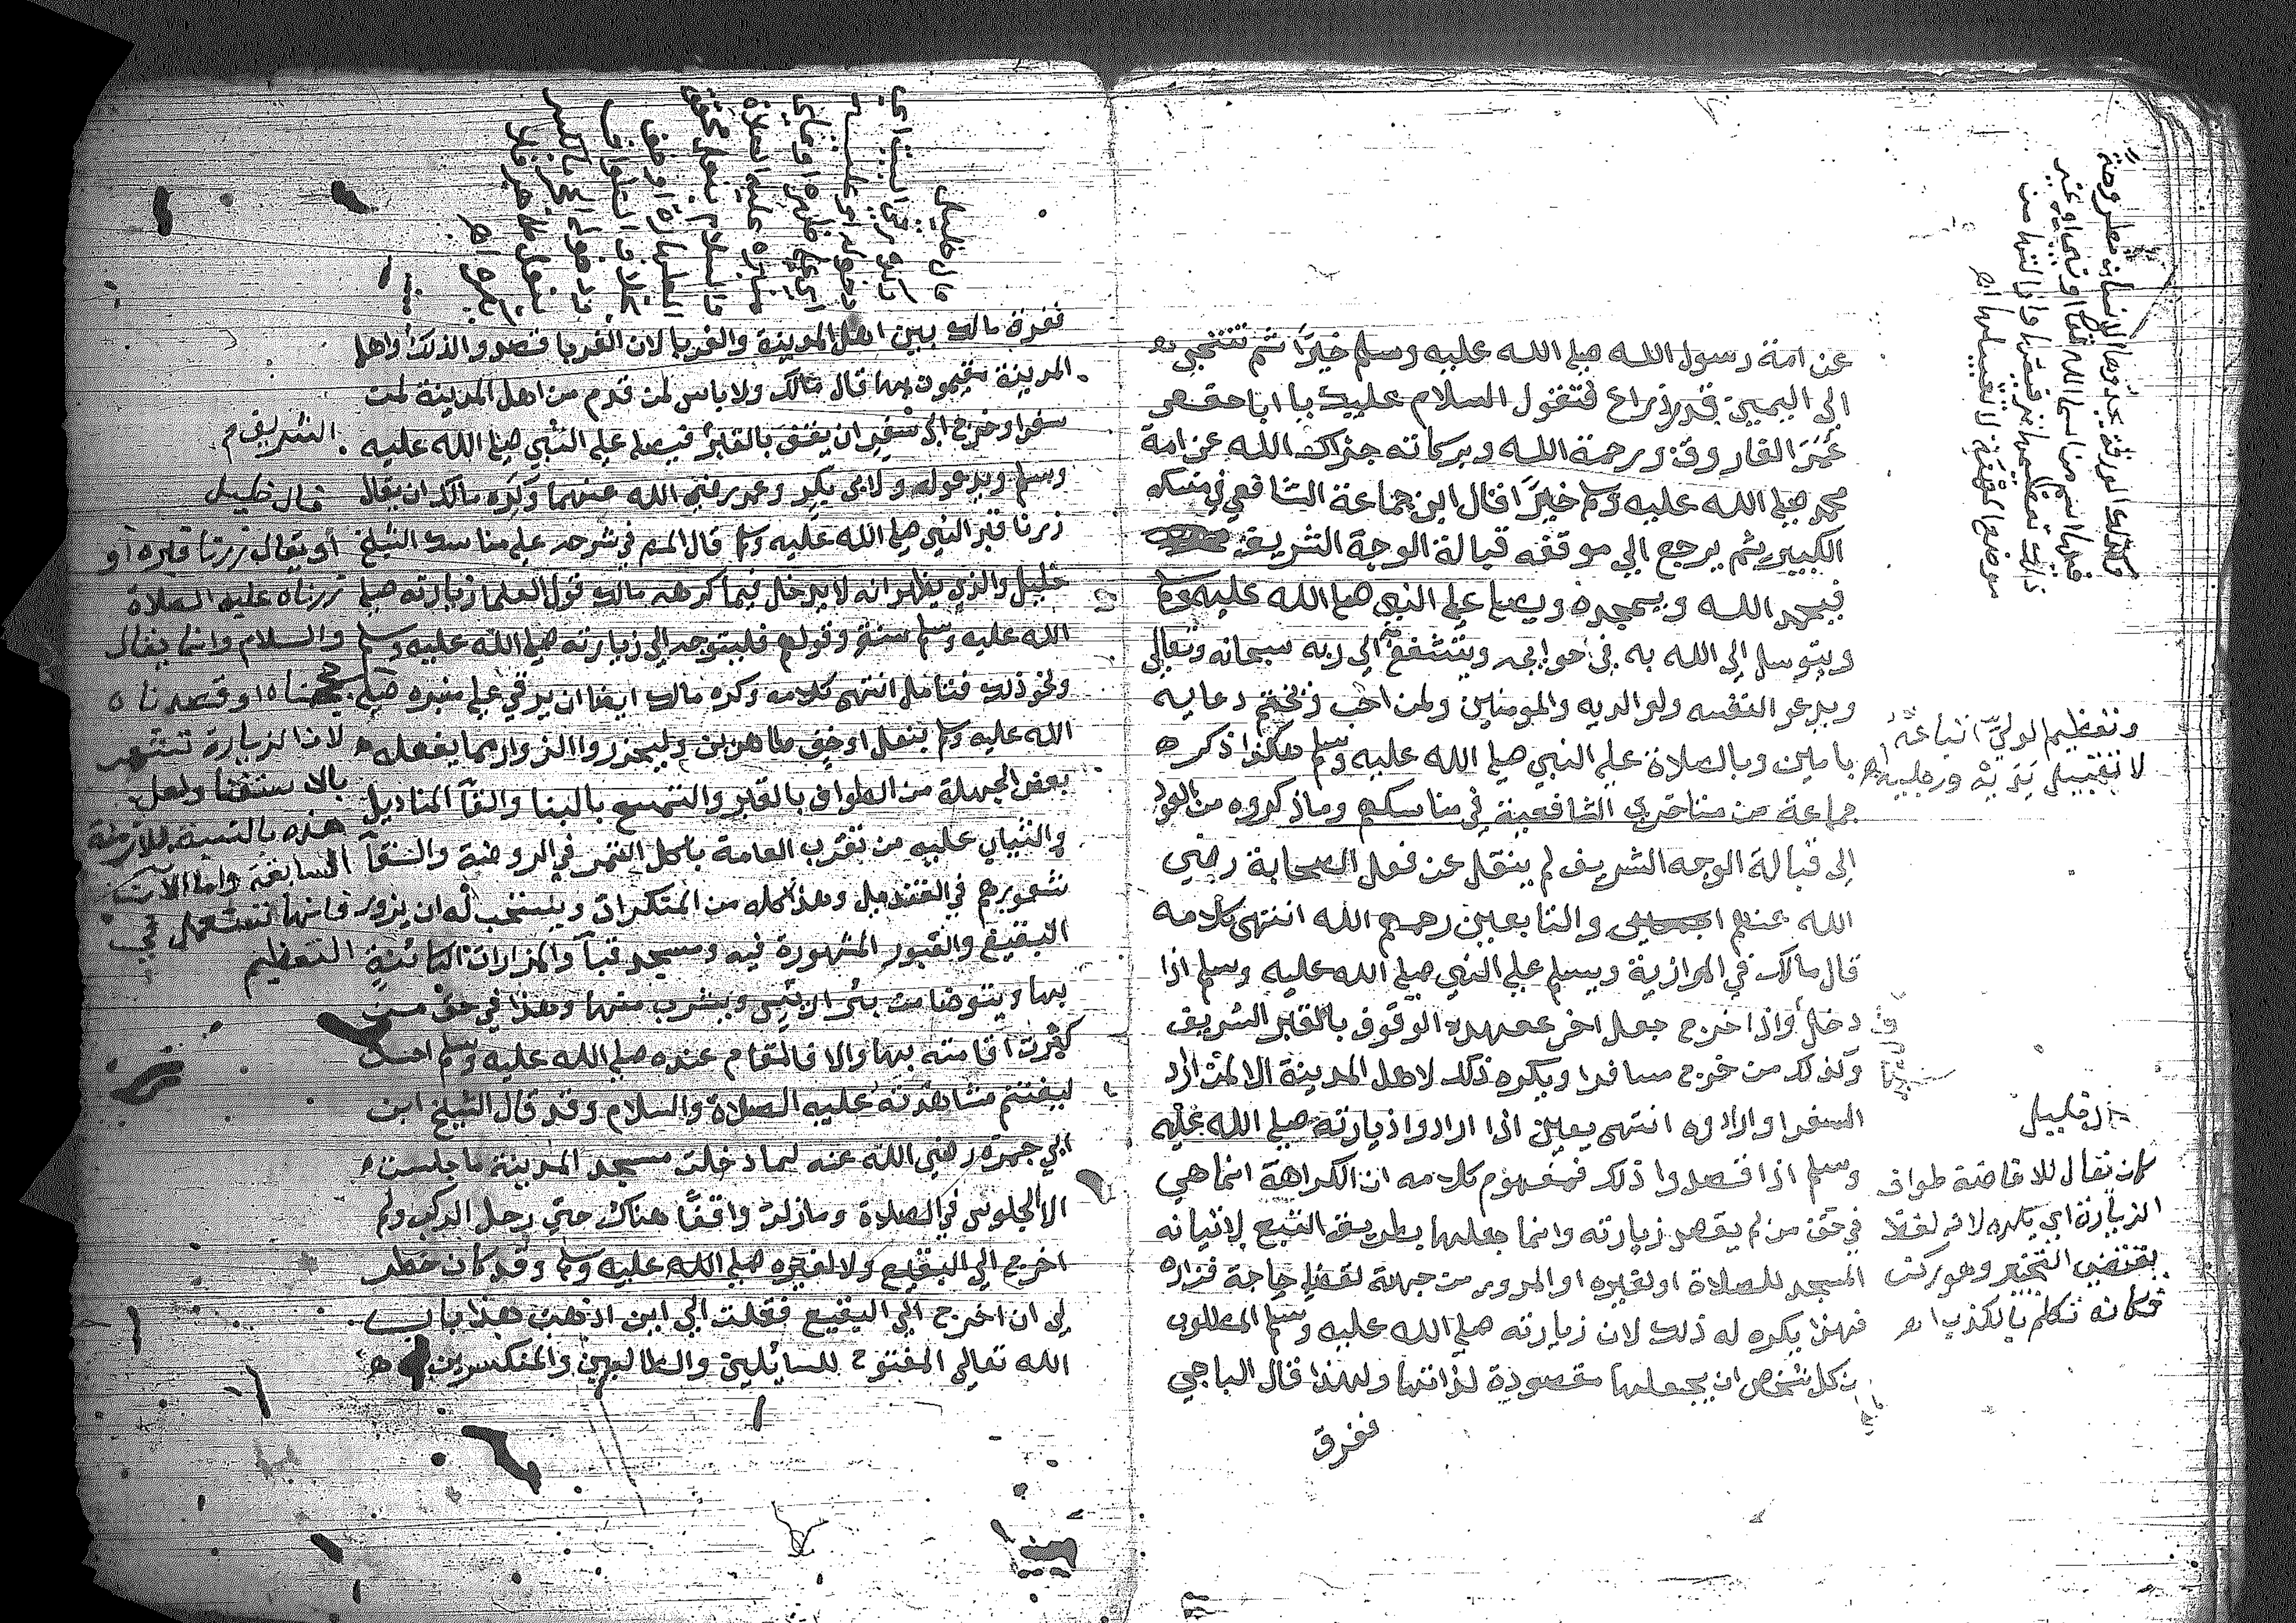 عن امة رسول الله صلي الله عليه وسلم خيرًا ثم تتنحي
الي اليمين قدر ذراع فتقول السلام عليك يا ابا حفص
عمر الفاروق ورحمة الله وبركاته جزاك الله عن امة
محمد صلي الله عليه وسلم خيرًا قال ابن جماعة الشافعي في منسكه
الكبير ثم يرجع الي موقفه قبالة الوجه الشريف
فيحمد الله ويمجده ويصلي علي النبي صلي الله عليه وسلم
ويتوسل الي الله به في حوايجه ويتشفع الي ربه سبحانه وتعالي
ويدعو لنفسه ولوالديه والمومنين ولمن احب ويختم دعايه
بامين وبالصلاة علي النبي صلي الله عليه وسلم هكذا ذكره
جماعة من متاخري الشافعية في مناسكهم وماذكروه من العود
الي قبالة الوجه الشريف لم ينقل عن فعل الصحابة رضي
الله عنهم والتابعين رحمهم الله انتهي كلامه
قال مالك في الموازية ويسلم علي النبي صلي الله عليه وسلم اذا
دخل واذا خرج جعل اخر عهده الوقوف بالقبر الشريف
وكذلك من خرج مسافرا ويكره ذلك لاهل المدينة الا لمن اراد
السفر او ارادوه انتهي يعين اذا ارادوا زيارته صلي الله عليه
وسلم اذا قصدوا ذلك فمفهوم كلامه ان الكراهة انما هي
في حق من لم يقصد زيارته وانما جعلها بطريق التبع لاتيانه
المسجد للصلاة او لغيره او المرور من جهة لقضا حاجة فزاره
فهذا يكره له ذلك لان زيارته صلي الله عليه وسلم المطلوب
من كل شخص ان يجعلها مقصودة لذاتها ولهذا قال الباجي
ففرق
وتعظيم الولي اتباعه
لا تقبيل يديه ورجليه اه
خليل
كان تقال للافاضة طواف
الزيارة اي يكره لانه لفظ
يقتضي التخيير وهو ركن
فكانه تكلم بالكذب اه
ففرق مالك بين اهل المدينة والغربا لان الغربا قصدوا لذلك واهل
المدينة مقيمون بها قال مالك ولا باس لمن قدم من اهل المدينة من
سفر او خرج الي سفر ان يقف بالقبر فيصلي علي النبي صلي الله عليه
وسلم ويدعو له ولابي بكر وعمر رضي الله عنهما وكره مالك ان يقال
زرنا قبر النبي صلي الله عليه وسلم قال المم في شرحه علي مناسك الشيخ
خليل والذي يظهر انه لا يدخل فيما كرهه مالك قول العلما زيارته صلي
الله عليه وسلم سنة وقولهم فليتوجه الي زيارته صلي الله عليه وسلم
ونحو ذلك فتامل انتهي كلامه وكره مالك ايضا ان يرقي علي منبره صلي
الله عليه وسلم بنعل او خف طاهرين وليحذروا الزوار مما يفعله
بعض الجهلة من الطواف بالقبر والتمسح بالبنا والقآ المناديل
والثياب عليه من تقرب العامة باكل التمر في الروضة والقآ
شعورهم في القنديل وهذا كله من المنكرات ويستحب له ان يزور
البقيع والقبور المشهورة فيه ومسجد قبآ والمزارات الكائنة
بها ويتوضا من بئر اريس ويشرب منها وهذا في حق من
كثرت اقامته بها والا فالمقام عنده صلي الله عليه وسلم احسن
ليغتنم مشاهدته عليه الصلاة والسلام وقد قال الشيخ ابن
ابي جمرة رضي الله عنه لما دخلت مسجد المدينة ماجلست
الا الجلوس في الصلاة ومازلت واقفًا هناك حتي رحل الركب ولم
اخرج الي البقيع ولا لغيره صلي الله عليه وسلم وقد كان خطر
لي ان اخرج الي البقيع فقلت الي اين اذهب هذا باب
الله تعالي المفتوح للسائلين والطالبين والمنكسرين
الشريف م
قال خليل
او يقال زرنا قبره او
زرناه عليه الصلاة
والسلام وانما يقال
جئناه او قصدناه
لان الزيارة تشعر
بالاستغنا ولعل
هذه بالنسبة للازمنة
السابقة واما الآن
فانها تستعمل في
التعظيم
قال خليل